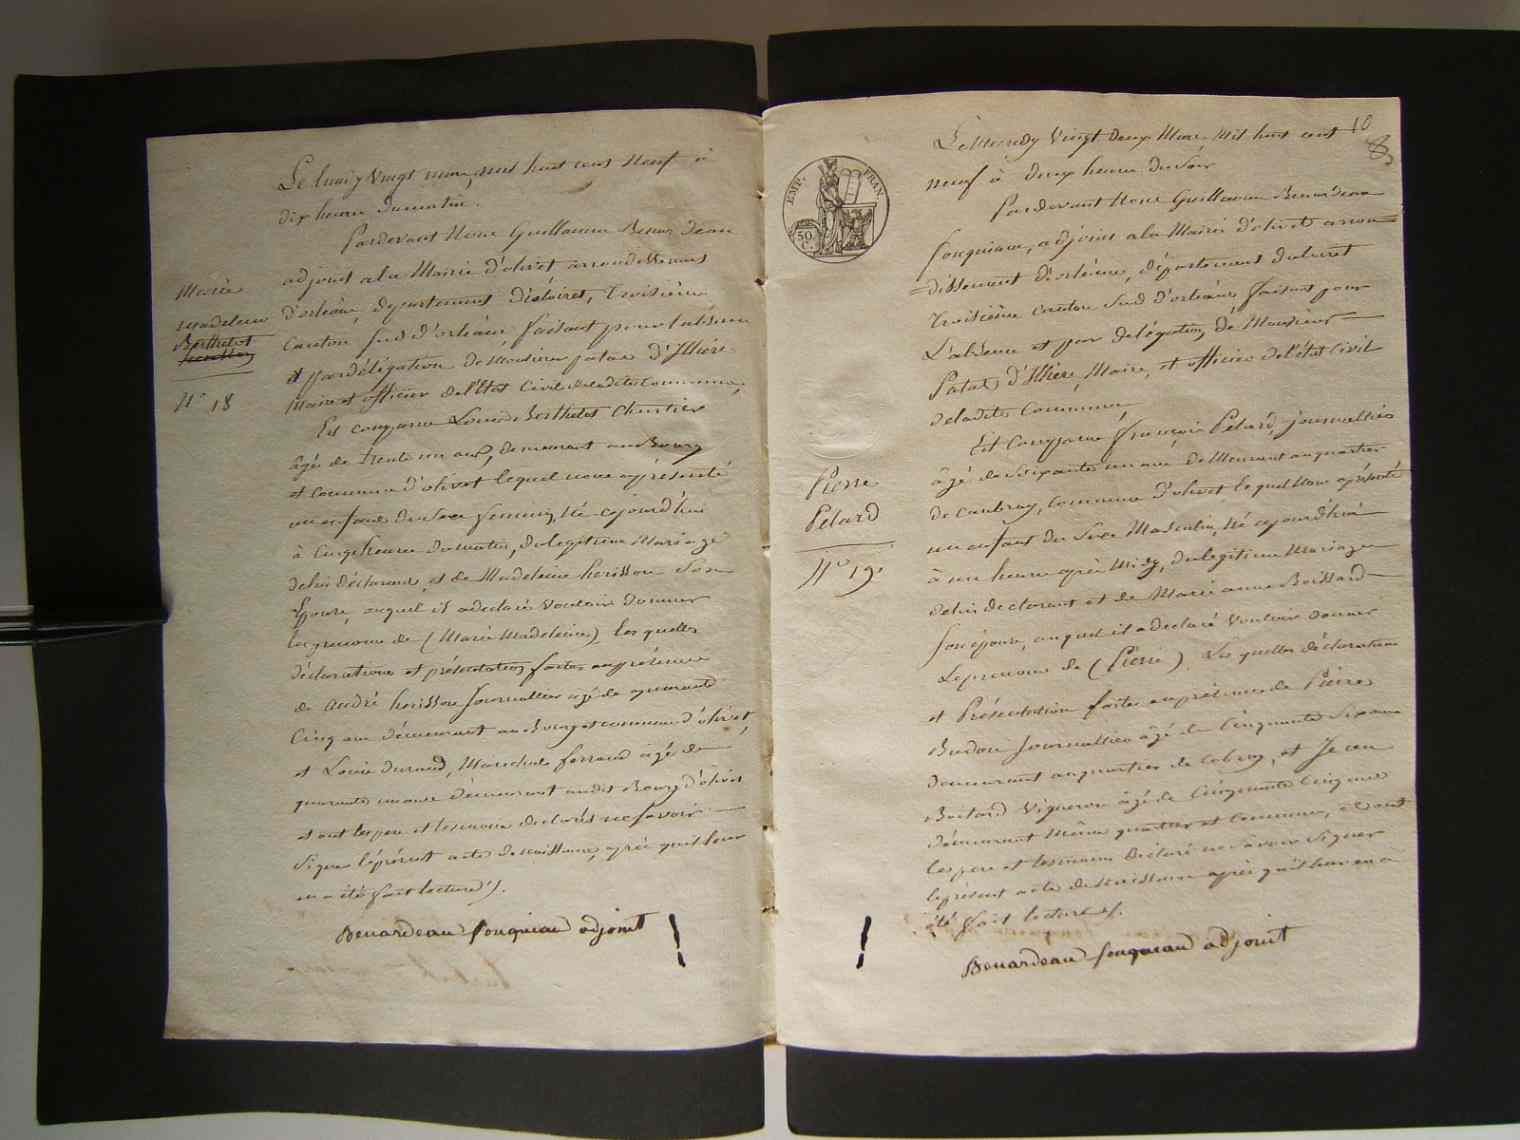 Le lundy Vingt mars, mil huit cent Neuf à
dix heure du matin.
Pardevant Nous Guillaume Benardeau
adjoint a la Mairie d'olivet arrondissement
d'orléans, departement du loiret, troisième
Canton Sud d'orléans faisant pour l'absence
et par délégation de Monsieur patas d'Illiers
Maire et officier de l'Etat Civil de la dite Commune,
Est comparu Louis Berthelot Charetier
âgé de trente un ans, demeurant au Bourg
et commune d'olivet lequel nous a présenté
un enfant du Sexe feminin, Né cejourd'hui
à Cinq heure du matin, de legitime Mariage
de lui déclarant, et de Madeleine herisson Son
Epouse, auquel il a declaré Vouloir donner
les prenoms de (Marie Madeleine) les quelles
déclarations et présentation faites en présence
de André herisson Journallier agé de quarante
Cinq ans demeurant au Bourg et commune d'olivet,
et Louis durand, Marechal ferrand agé de
quarante un ans demeurant au dit Bourg d'olivet
et ont les pere et temoins declarés ne savoir
Signer le présent acte de naissance, après qu'il leur
en a été fait lecture /.
Benardeau fouqueau adjoint
Marie
Madeleine
Berthelot
N° 18
10
8
EMP. FRAN.
50
C.
Le Mercredy Vingt deux Mars Mil huit cent
neuf à deux heure du Soir
Pardevant Nous Guillaume Benardeau
fouqueau, adjoint a la Mairie d'olivet arron=
=dissement d'orléans, département du loiret
troisième canton Sud d'orléans faisant pour
L'absence et par delégation de Monsieur
Patas d'Illiers, Maire, et officier de l'état Civil
de la dite Commune,
Est Comparu françois Pelard, journallier
âgé de Soixante un ans demeurant au quartier
de caubray, Commune d'olivet lequel Nous a présenté
un enfant du Sexe Masculin, Né cejourd'hui
à un heure après Midy, de legitime Mariage
de lui declarant et de Marie anne Boissard
Son épouse, auquel il a declaré Vouloir donner
Le prenom de (Pierre). Les quelles déclaration
et Présentation faites en présence de Pierre
Journallier âgé de Cinquante Six ans
demeurant au quartier de et Jean
Vigneron âgé de Cinquante Cinq ans
demeurant même quartier et Commune, et ont
les pere et temoins declaré ne Savoir Signer
le présent acte de Naissance après qu'il leur en a
été fait lecture /.
Benardeau fouqueau adjoint
Pierre
Pelard
N° 19.